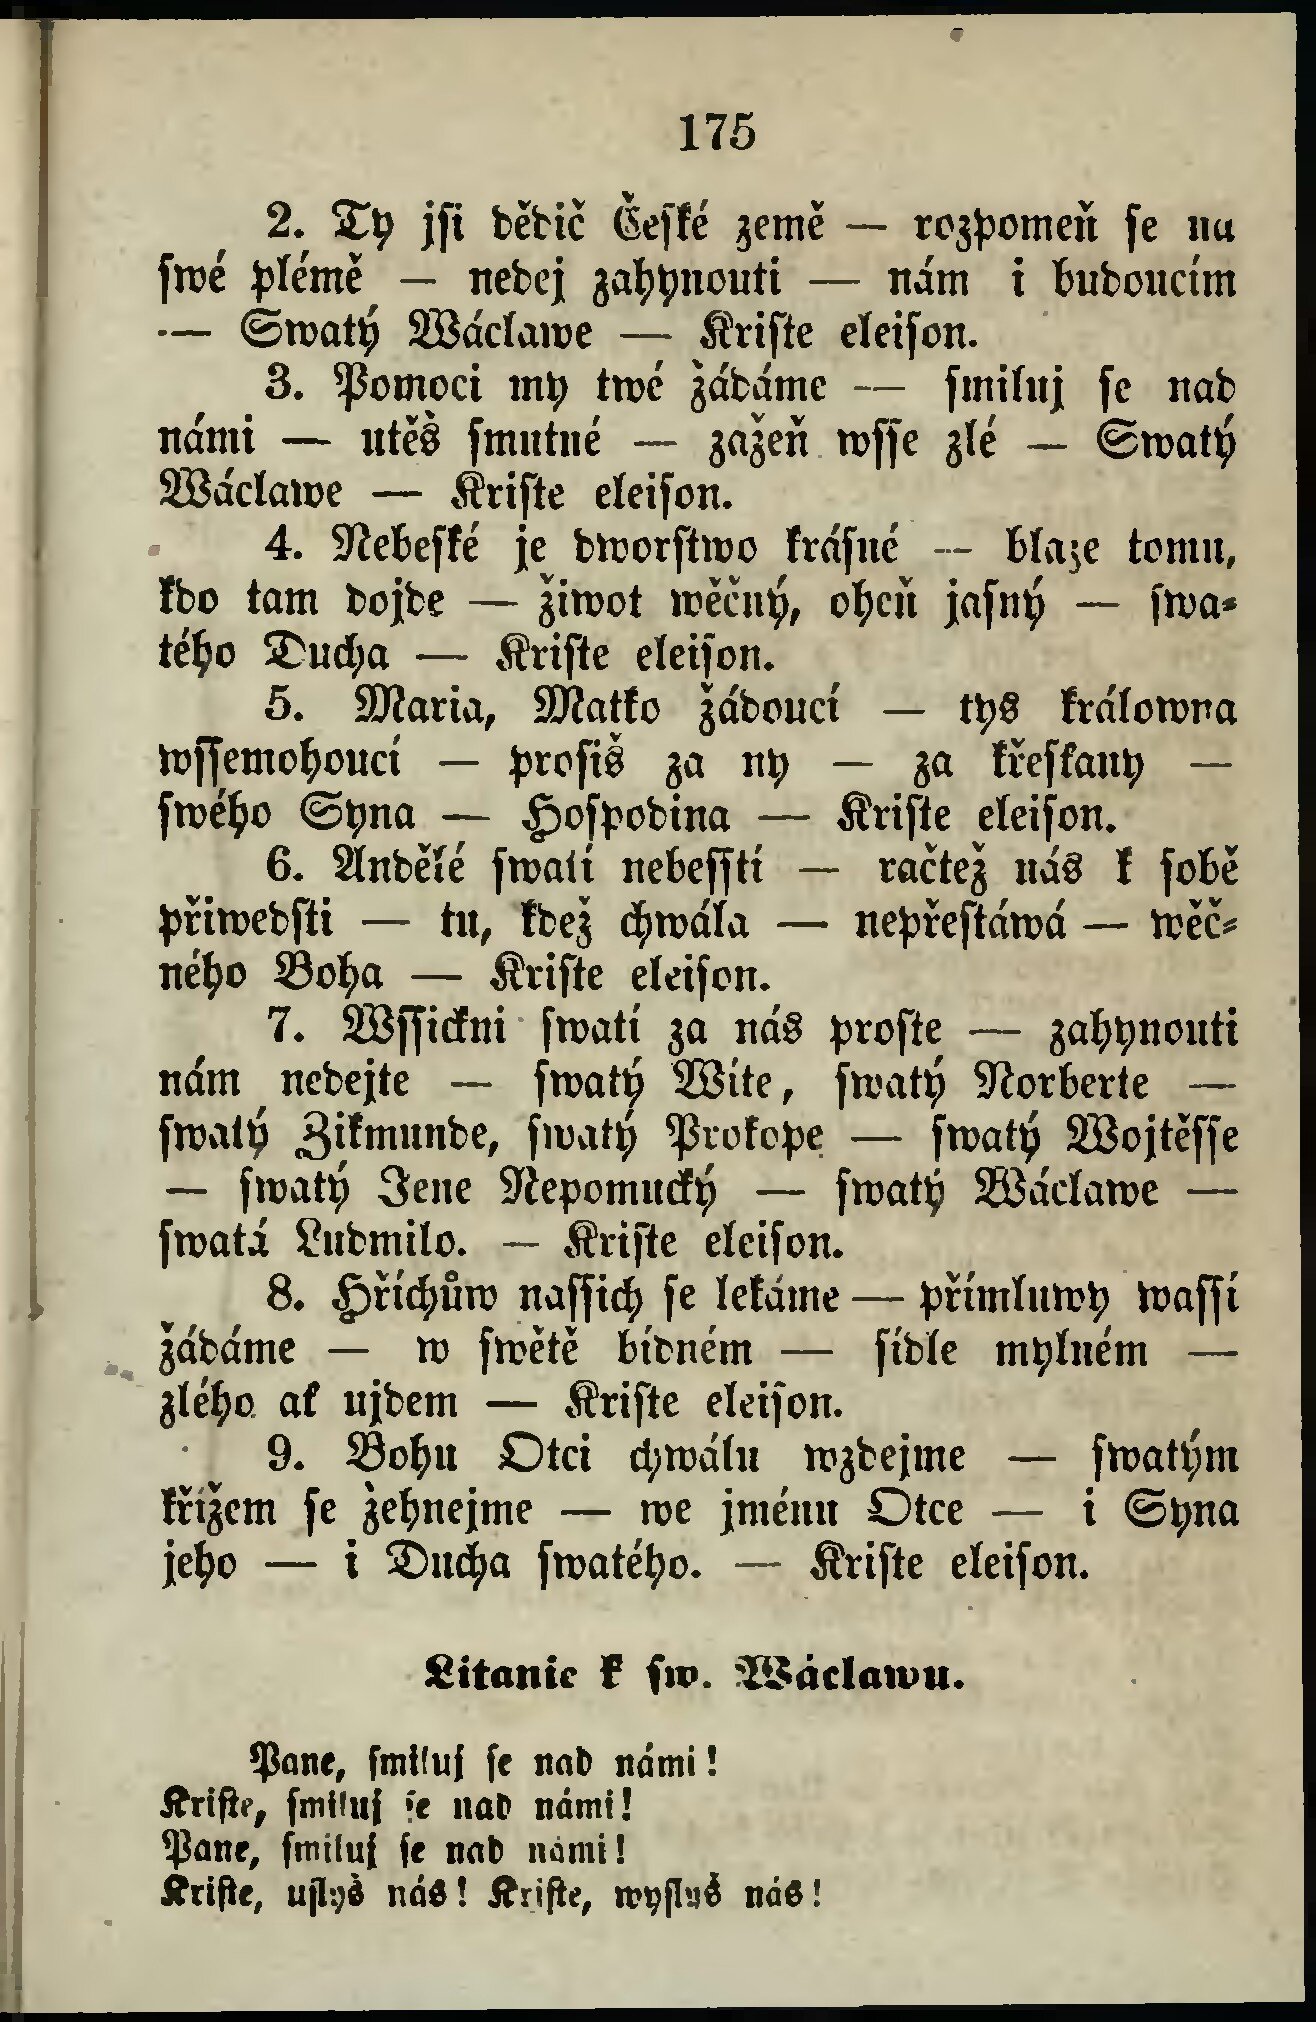 175
2. Ty jsi dědič České země — rozpomeň se na
swé plémě — nedej zahynouti — nám i budoucím
— Swatý Wáclawe — Kriste eleison.
3. Pomoci my twé žádáme — smiluj se nad
námi — utěš smutné — zažeň wsse zlé — Swatý
Wáclawe — Kriste eleison.
4. Nebeské je dworstwo krásné — blaze tomu,
kdo tam dojde — žiwot wěčný, oheň jasný — swa=
tého Ducha — Kriste eleison.
5. Maria, Matko žádoucí — tys králowna
wssemohoucí — prosiš za ny — za křeskany —
swého Syna — Hospodina — Kriste eleison.
6. Andělé swatí nebesstí — račtež nás k sobě
přiwedsti — tu, kdež chwála — nepřestáwá — wěč=
ného Boha — Kriste eleison.
7. Wssickni swatí za nás proste — zahynouti
nám nedejte — swatý Wíte, swatý Norberte —
swatý Zikmunde, swatý Prokope — swatý Wojtěsse
— swatý Jene Nepomucký — swatý Wáclawe —
swatá Ludmilo. — Kriste eleison.
8. Hříchůw nassich se lekáme — přímluwy wassí
žádáme — w swětě bídném — sídle mylném —
zlého ak ujdem — Kriste eleison.
9. Bohu Otci chwálu wzdejme — swatým
křížem se žehnejme — we jménu Otce — i Syna
jeho — i Ducha swatého. — Kriste eleison.
Litanie k sw. Wáclawu.
Pane, smiluj se nad námi!
Kriste, smiluj se nad námi!
Pane, smiluj se nad námi!
Kriste, uslyš nás! Kriste, wyslyš nás!